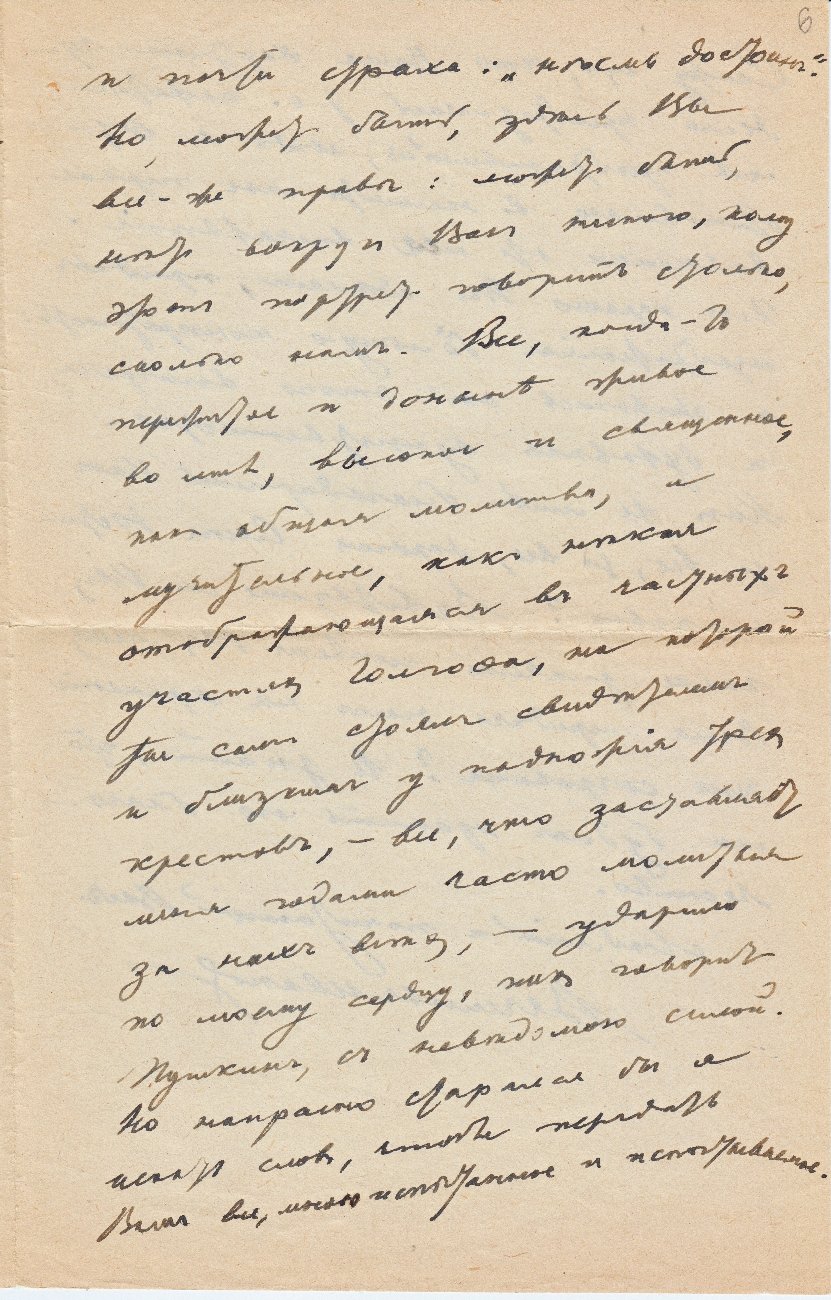 6
и почти страха: „нѣсмь достоинъ“.
Но, можетъ быть, здѣсь Вы
все-же правы: можетъ быть,
нѣтъ вокругъ Васъ никого, кому
этотъ портретъ говорилъ столько,
сколько намъ. Все, когда-то
пережитое и донынѣ живое
во мнѣ, высокое и священное,
какъ общая молитва, и
мучительное, какъ некая
отображающаяся въ частныхъ
участяхъ Голгоѳа, на которой
Ты самъ стоялъ свидѣтелемъ
и близкимъ у подножія трехъ
крестовъ, – все, что заставляетъ
меня годами часто молиться
за нихъ всѣхъ, – ударило
по моему сердцу, какъ говоритъ
Пушкинъ, съ невѣдомою силой.
Но напрасно старался бы я
искать словъ, чтобы передать
Вамъ все, мною испытанное и испытываемое.